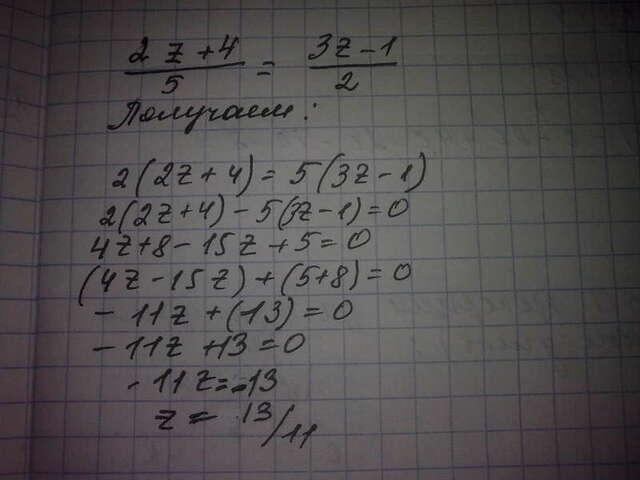 2z+4/5 = 3z-1/2
Получаем:
2(2z+4) = 5(3z-1)
2(2z+4) - 5(3z-1) = 0
4z+8-15z+5=0
(4z-15z)+(5+8)=0
-11z+(-13)=0
-11z+13=0
-11z=-13
z = 13/11